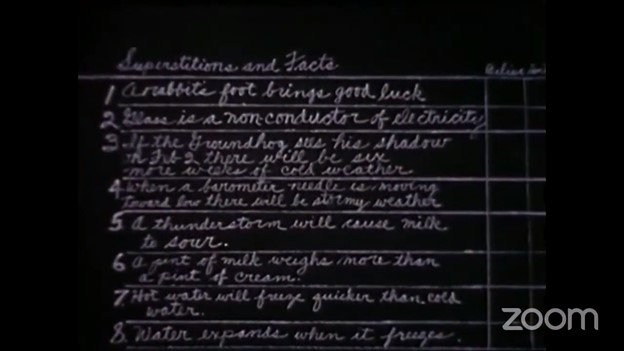 Superstitions and Facts
1 A rabbits foot brings good luck
2 Glass is a non-conductor of electricity
3 If the Groundhog sees his shadow
on Feb 2 there will be six
more weeks of cold weather
4 When a barometer needle is moving
toward low there will be stormy weather
5 A thunderstorm will cause milk
to sour.
6 A pint of milk weighs more than
a pint of cream.
7 Hot water will freeze quicker than cold
water.
8. Water expands when it freezes.
zoom